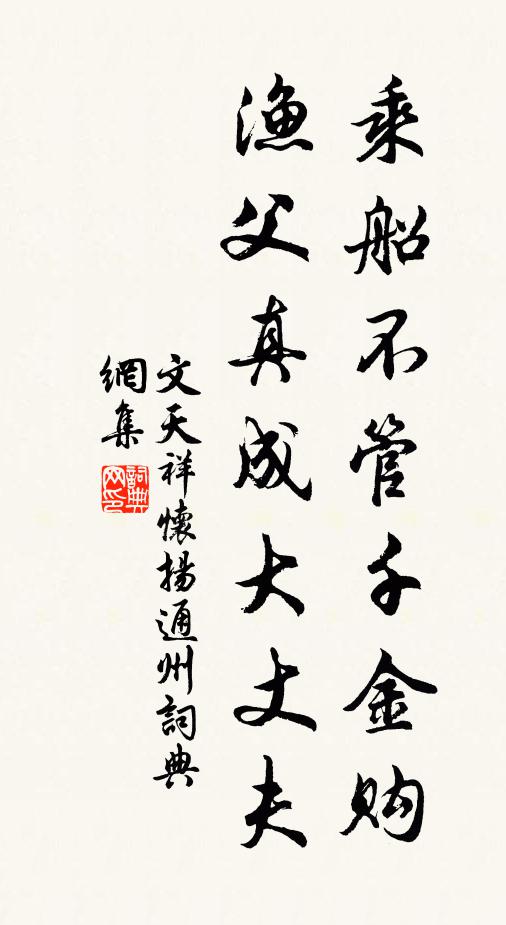 乘船不管千金购
渔父真成大丈夫
文天祥懷揚通州詞典
網集
詞典
网印